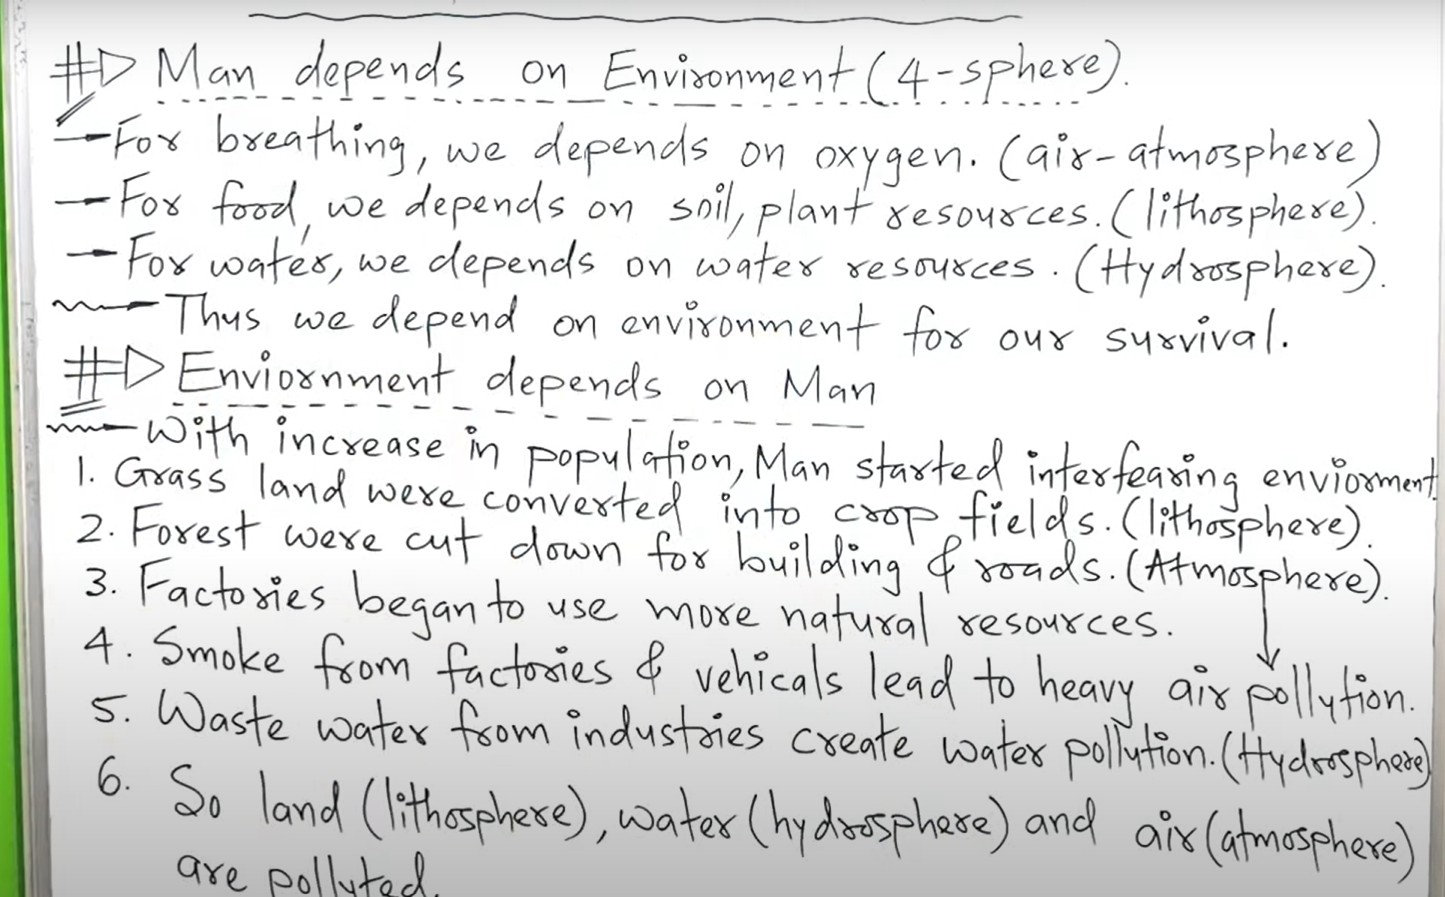 #▷ Man depends on Environment (4-sphere).
— For breathing, we depends on oxygen. (air-atmosphere)
— For food, we depends on soil, plant resources. (lithosphere).
— For water, we depends on water resources. (Hydrosphere).
— Thus we depend on environment for our survival.
#▷ Enviornment depends on Man
— With increase in population, Man started interfearing enviorment.
1. Grass land were converted into crop fields. (lithosphere).
2. Forest were cut down for building & roads. (Atmosphere).
3. Factories began to use more natural resources.
4. Smoke from factories & vehicals lead to heavy air pollution.
5. Waste water from industries create water pollution. (Hydrosphere)
6. So land (lithosphere), water (hydrosphere) and air (atmosphere)
are polluted.